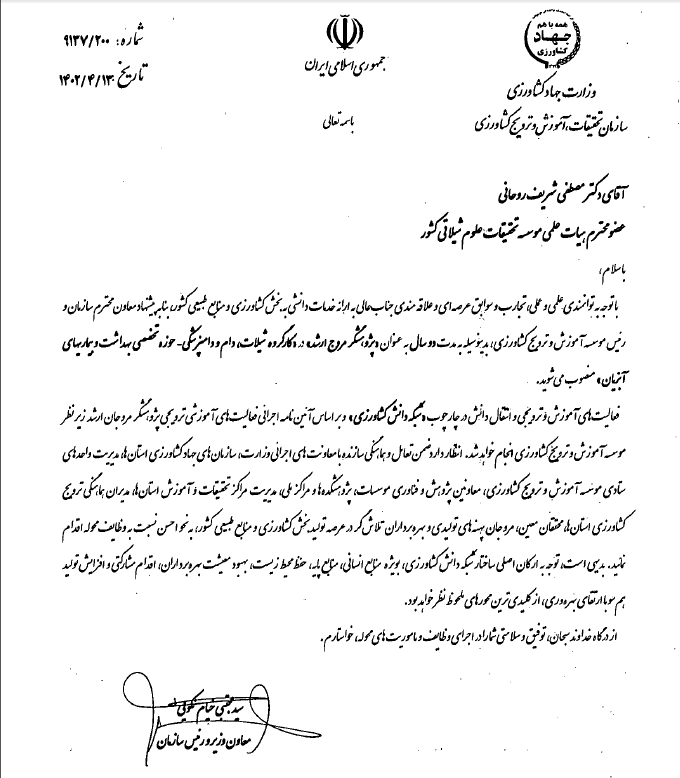 همه با هم
جهاد
کشاورزی
وزارت جهاد کشاورزی
سازمان تحقیقات، آموزش و ترویج کشاورزی
جمهوری اسلامی ایران
باسمه تعالی
شماره: ۹۱۳۷/۲۰۰
تاریخ: ۱۴۰۲/۴/۱۳
آقای دکتر مصطفی شریف روحانی
عضو محترم هیات علمی موسسه تحقیقات علوم شیلاتی کشور
باسلام،
با توجه به توانمندی علمی و عملی، تجارب و سوابق عرصه ای و علاقه مندی جناب عالی به ارائه خدمات دانشی به بخش کشاورزی و منابع طبیعی کشور، بنا به پیشنهاد معاون محترم سازمان و
رئیس موسسه آموزش و ترویج کشاورزی، بدینوسیله به مدت دو سال به عنوان «پژوهشگر مروج ارشد» در «کارگروه شیلات، دام و دامپزشکی- حوزه تخصصی بهداشت و بیماریهای
آبزیان» منصوب می شوید.
فعالیت های آموزش و ترویجی و انتقال دانش در چارچوب «شبکه دانش کشاورزی» و بر اساس آئین نامه اجرائی فعالیت های آموزشی ترویجی پژوهشگر مروجان ارشد زیر نظر
موسسه آموزش و ترویج کشاورزی انجام خواهد شد. انتظار دارد ضمن تعامل و هماهنگی سازنده با معاونت های اجرائی وزارت، سازمان های جهاد کشاورزی استان ها، مدیریت واحدهای
ستادی موسسه آموزش و ترویج کشاورزی، معاونین پژوهش و فناوری موسسات، پژوهشکده ها و مراکز ملی، مدیریت مراکز تحقیقات و آموزش استان ها، مدیران هماهنگی ترویج
کشاورزی استان ها، محققان معین، مروجان پهنه های تولیدی و بهره برداران تلاش گر در عرصه تولید بخش کشاورزی و منابع طبیعی کشور، به نحو احسن نسبت به وظایف محوله اقدام
نمائید. بدیهی است، توجه به ارکان اصلی ساختار شبکه دانش کشاورزی، بویژه منابع انسانی، منابع پایه، حفظ محیط زیست، بهبود معیشت بهره برداران، اقدام مشارکتی و افزایش تولید
هم سو با ارتقای بهره وری، از کلیدی ترین محورهای ملحوظ نظر خواهد بود.
از درگاه خداوند سبحان، توفیق و سلامتی شما را در اجرای وظایف و ماموریت های محوله، خواستارم.
سید مجتبی خیام نکوئی
معاون وزیر و رئیس سازمان